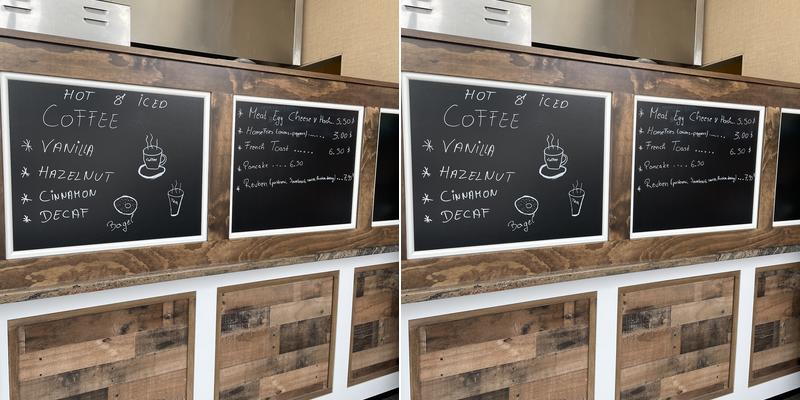 HOT & ICED
COFFEE
* VANILLA
* HAZELNUT
* CINNAMON
* DECAF
Coffee
Bagel
* Meat Egg Cheese 5.50 $
* HomeFries ...... 3.00 $
* French Toast ...... 6.50 $
* Pancake .... 6.50
* Reuben
HOT & ICED
COFFEE
* VANILLA
* HAZELNUT
* CINNAMON
* DECAF
Coffee
Bagel
* Meat Egg Cheese 5.50 $
* HomeFries ...... 3.00 $
* French Toast ...... 6.50 $
* Pancake .... 6.50
* Reuben